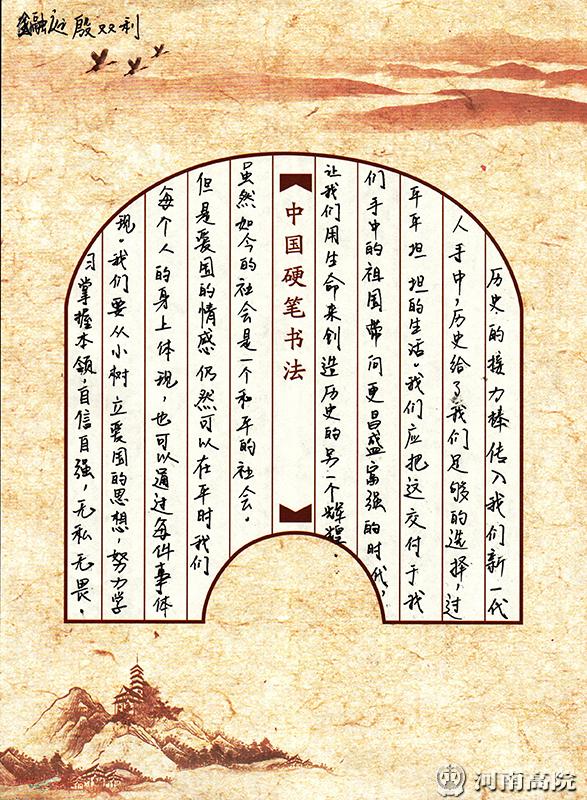 金融庭 殷双利
历史的接力棒传入我们新一代
人手中，历史给了我们足够的选择，过
平平坦坦的生活。我们应把这交付于我
们手中的祖国带向更昌盛富强的时代，
让我们用生命来创造历史的另一个辉煌。
中国硬笔书法
虽然如今的社会是一个和平的社会。
但是爱国的情感仍然可以在平时我们
每个人的身上体现，也可以通过每件事体
现。我们要从小树立爱国的思想，努力学
习掌握本领，自信自强，无私无畏，
河南高院